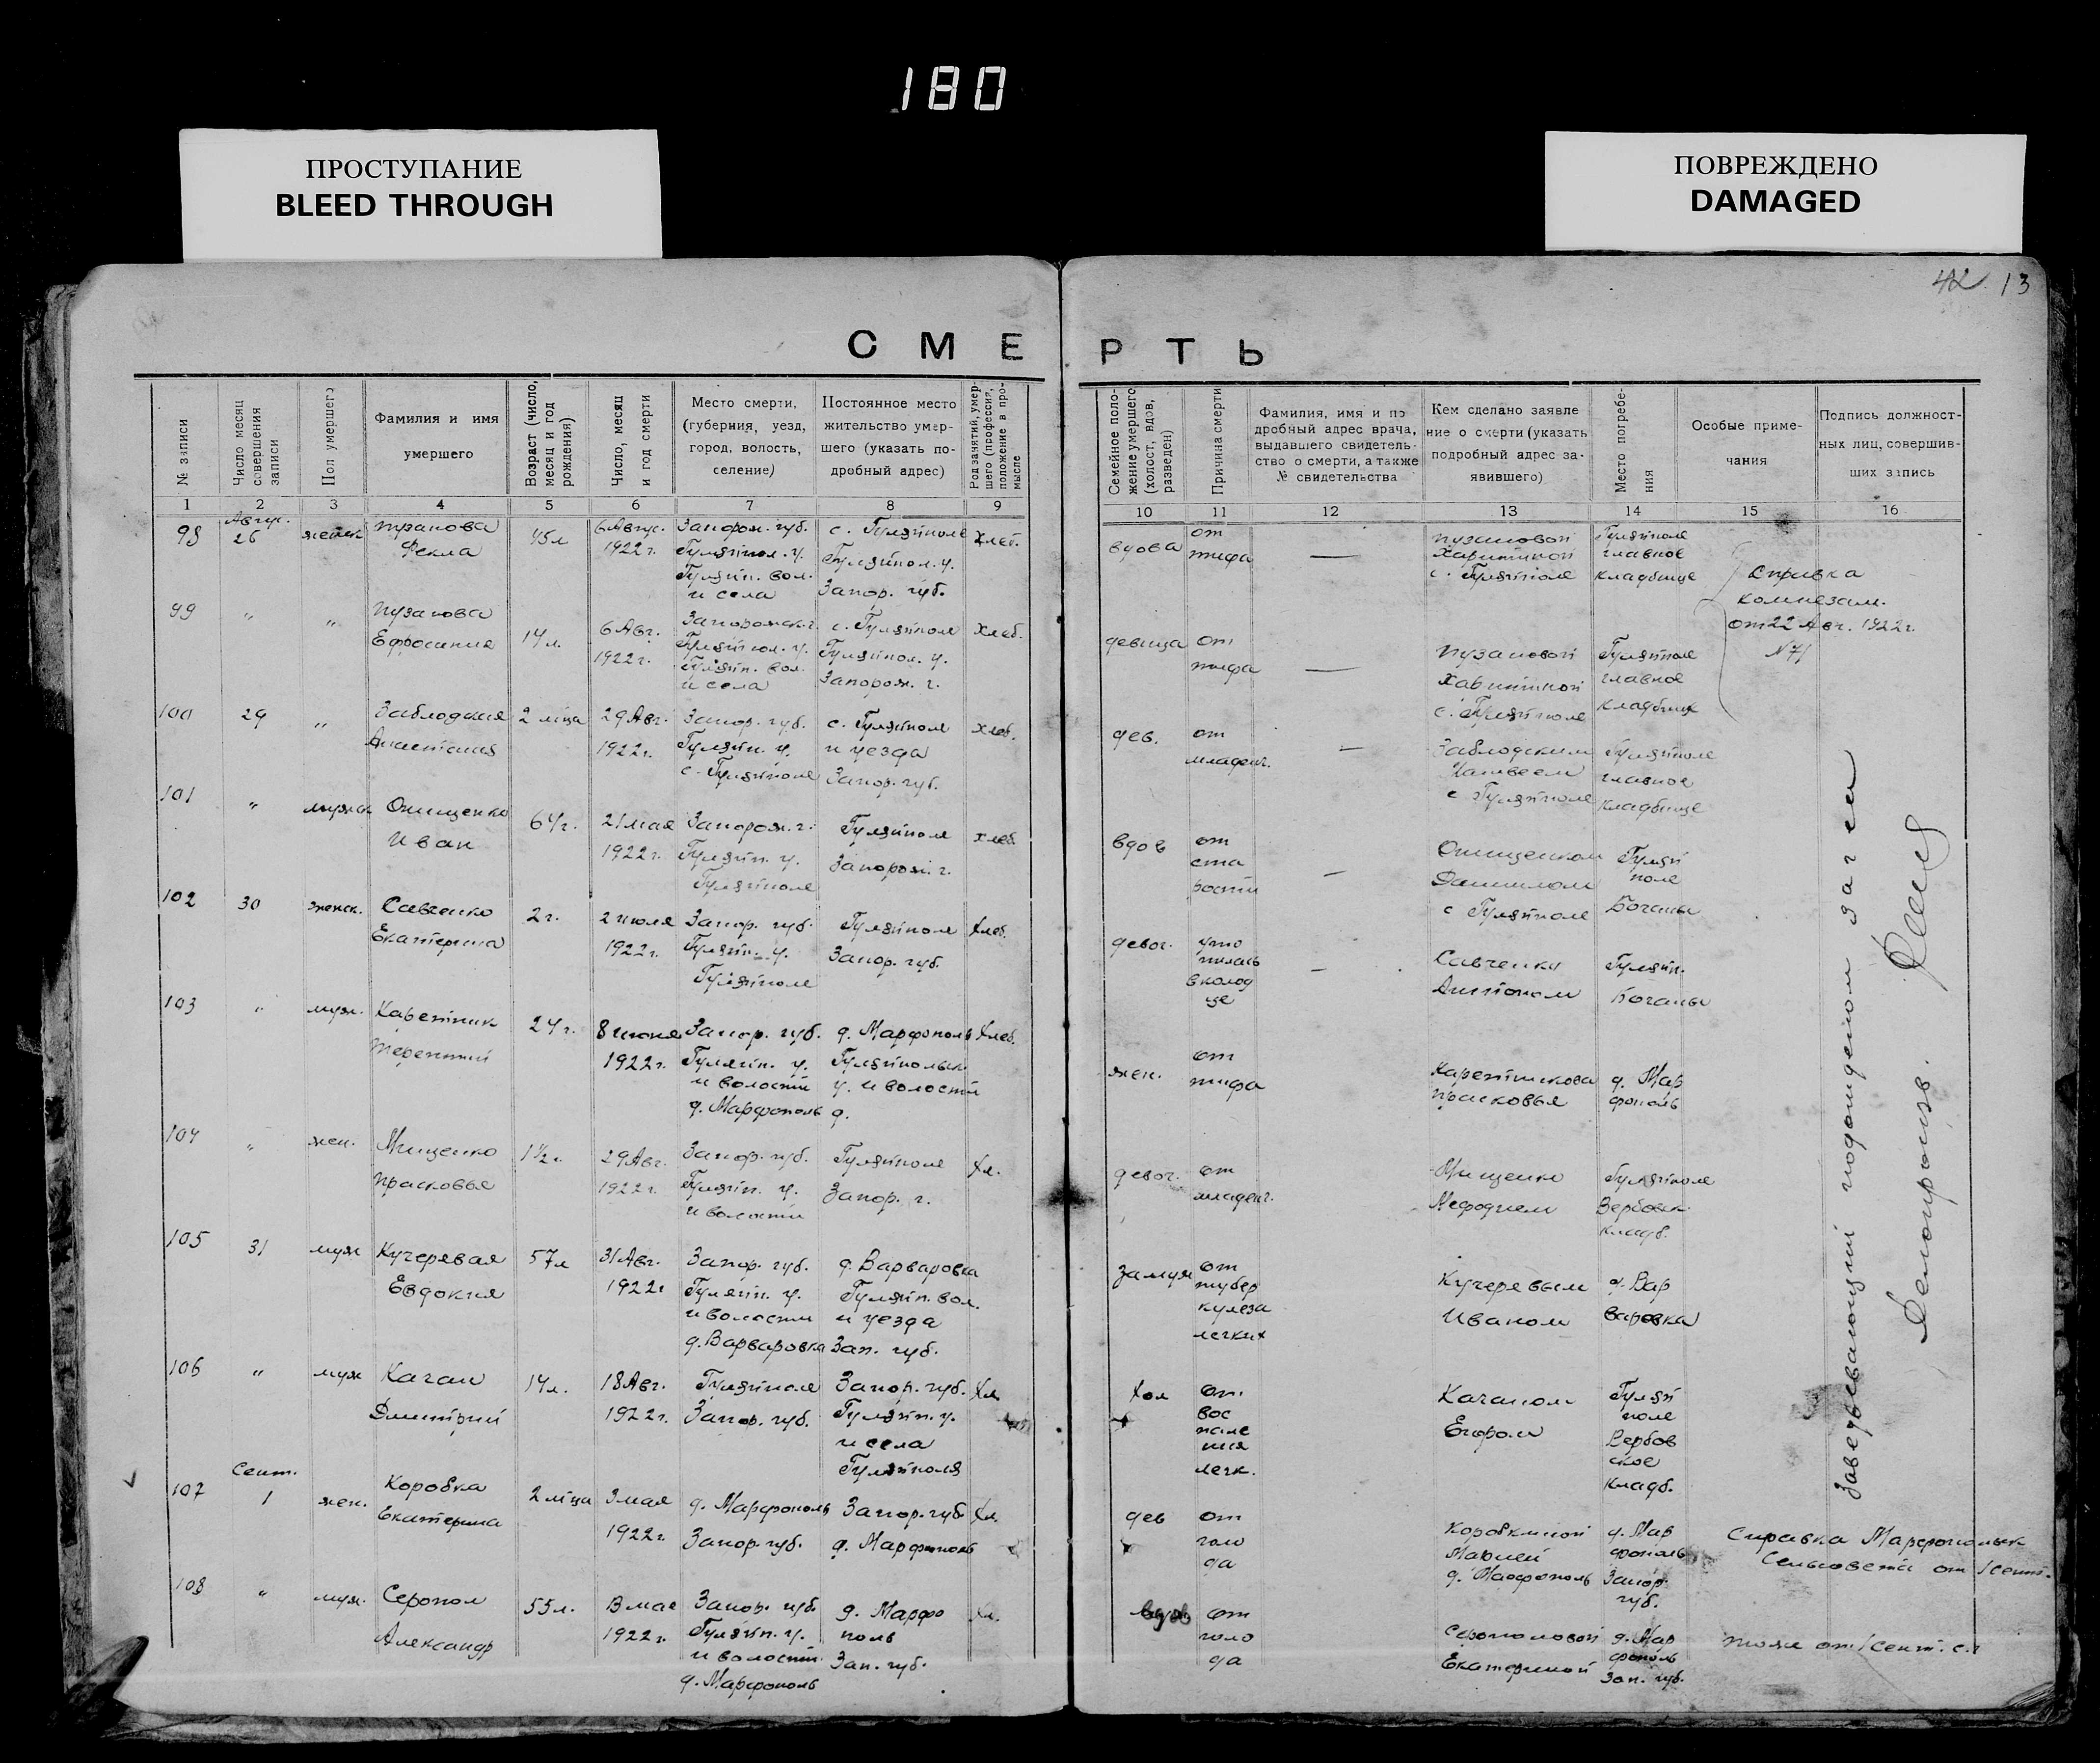 180
ПРОСТУПАНИЕ
BLEED THROUGH
ПОВРЕЖДЕНО
DAMAGED
42 13
СМЕРТЬ
№ записи
Число месяц совершения записи
Пол умершего
Фамилия и имя умершего
Возраст (число, месяц и год рождения)
Число, месяц и год смерти
Место смерти, (губерния, уезд, город, волость, селение)
Постоянное место жительство умершего (указать подробный адрес)
Род занятий, умершего (профессия, положение в промысле
Семейное положение умершего (холост, вдов, разведен)
Причина смерти
Фамилия, имя и подробный адрес врача, выдавшего свидетельство о смерти, а также № свидетельства
Кем сделано заявление о смерти (указать подробный адрес заявившего)
Место погребения
Особые примечания
Подпись должностных лиц, совершивших запись
1 2 3 4 5 6 7 8 9 10 11 12 13 14 15 16
98 Авгус. 26 женск Пузанова Фекла 45 л 6 Авгус. 1922 г. Запорож. губ. Гуляйпол. у. Гуляйп. вол. и села с. Гуляйполе Гуляйпол. у. Запор. губ. Хлеб. вдова от тифа — Пузановой Харитиной с. Гуляйполе Гуляйполе главное кладбище Справка комнезам. от 22 Авг. 1922 г. N 71
99 " " Пузанова Ефросиния 14 л. 6 Авг. 1922 г. Запорожск. г. Гуляйпол. у. Гуляйп. вол. и села с. Гуляйполе Гуляйпол. у. Запорож. г. Хлеб. девица от тифа — Пузановой Харитиной с. Гуляйполе Гуляйполе главное кладбище
100 29 " Заблодская Анастасия 2 м-ца 29 Авг. 1922 г. Запор. губ. Гуляйп. у. с. Гуляйполе с. Гуляйполе и уезда Запор. губ. хлеб. дев. от младенч. — Заблодским Матвеем с Гуляйполе Гуляйполе главное кладбище
101 " мужск Онищенко Иван 64 г. 21 мая 1922 г. Запорож. г. Гуляйп. у. Гуляйполе Гуляйполе Запорож. г. хлеб вдов от ста рости — Онищенком Даниилом с Гуляйполе Гуляй поле Бочаны
102 30 женск. Савченко Екатерина 2 г. 2 июля 1922 г. Запор. губ. Гуляйп. у. Гуляйполе Гуляйполе Запор. губ. Хлеб. девоч. уто пилась в колод це — Савченко Антоном Гуляйп. Бочаны
103 " муж. Каретник Терентий 24 г. 8 июня 1922 г. Запор. губ. Гуляйп. у. и волости д. Марфополь д. Марфополь Гуляйпольск. у. и волости д. Хлеб. жен. от тифа Каретникова Прасковья д. Мар фополь
104 " жен. Мищенко Прасковья 1½ г. 29 Авг. 1922 г. Запор. губ. Гуляйп. у. и волости Гуляйполе Запор. г. Хл. девоч. от младенч. Мищенко Мефодием Гуляйполе Вербовск. кладб.
105 31 муж Кучерявая Евдокия 57 л 31 Авг. 1922 г Запор. губ. Гуляйп. у. и волости д. Варваровка д. Варваровка Гуляйп. вол. и уезда Зап. губ. замуж от тубер кулеза легких Кучерявым Иваном д. Вар варовка
106 " муж Качан Дмитрий 14 л. 18 Авг. 1922 г. Гуляйполе Запор. губ. Запор. губ. Гуляйп. у. и села Гуляйполя Хл. Хол от вос пале ния легк. Качаном Егором Гуляй поле Вербов ское кладб.
107 Сент. 1 жен. Коробка Екатерина 2 м-ца 3 мая 1922 г. д. Марфополь Запор. губ. Запор. губ д. Марфополь Хл. дев от голо да Коробкиной Марией д. Марфополь д. Мар фополь Запор. губ. Справка Марфопольск Сельсовета от 1 сент.
108 " муж. Серопол Александр 55 л. 13 мая 1922 г. Запор. губ. Гуляйп. у. и волости д. Марфополь д. Марфо поль Зап. губ. Хл. вдов от голо да Серополовой Екатериной д. Мар фополь Зап. губ. тоже от 1 сент. с.г
Заведывающий подотделом загса
Делопроизв.